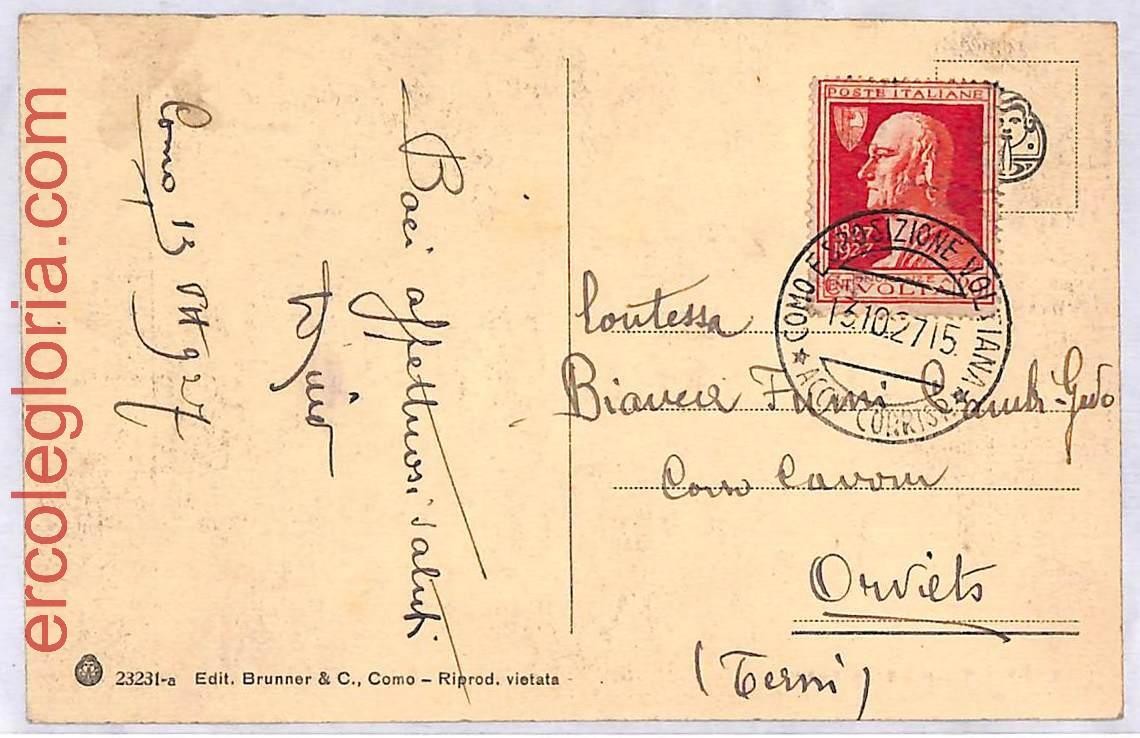 ercolegloria.com
Como 13 9 27
Baci affettuosi saluti
POSTE ITALIANE
1827
1927
VOLTA
COMO ESPOSIZIONE VOLTIANA
13.10.27 15
Contessa
Bianca
Corso Cavour
Orvieto
(Terni)
23231-a Edit. Brunner & C., Como – Riprod. vietata